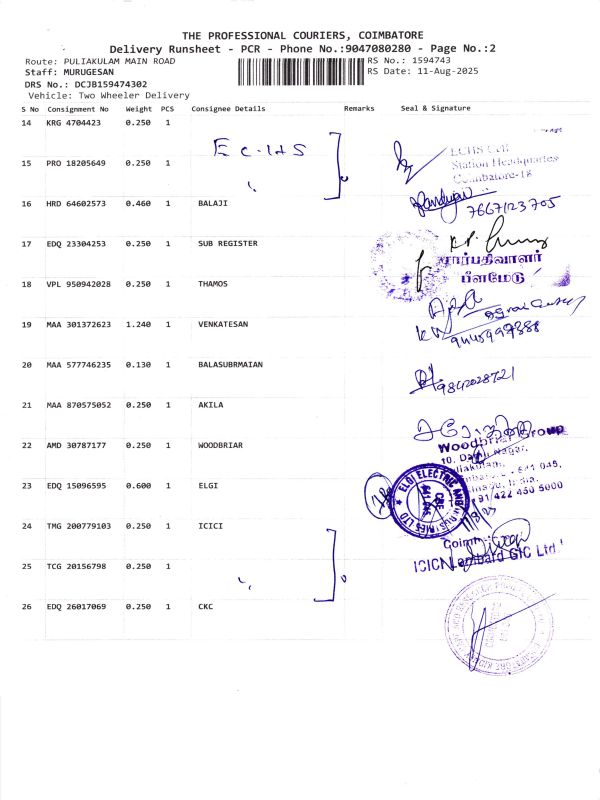 THE PROFESSIONAL COURIERS, COIMBATORE
Delivery Runsheet - PCR - Phone No.:9047080280 - Page No.:2
Route: PULIAKULAM MAIN ROAD
RS No.: 1594743
Staff: MURUGESAN
RS Date: 11-Aug-2025
DRS No.: DCJB159474302
Vehicle: Two Wheeler Delivery
S No Consignment No Weight PCS Consignee Details Remarks Seal & Signature
14 KRG 4704423 0.250 1
ECHS
ECHS Cell
Station Headquarters
Coimbatore-18
15 PRO 18205649 0.250 1
16 HRD 64602573 0.460 1 BALAJI
7667123705
17 EDQ 23304253 0.250 1 SUB REGISTER
சார்பதிவாளர்
பீளமேடு
18 VPL 950942028 0.250 1 THAMOS
19 MAA 301372623 1.240 1 VENKATESAN
20 MAA 577746235 0.130 1 BALASUBRMAIAN
9842028721
21 MAA 870575052 0.250 1 AKILA
22 AMD 30787177 0.250 1 WOODBRIAR
Woodbriar Group
23 EDQ 15096595 0.600 1 ELGI
ELGI ELECTRIC AND INDUSTRIES LTD
CBE
641 045
24 TMG 200779103 0.250 1 ICICI
ICICI Lombard GIC Ltd.
25 TCG 20156798 0.250 1
26 EDQ 26017069 0.250 1 CKC